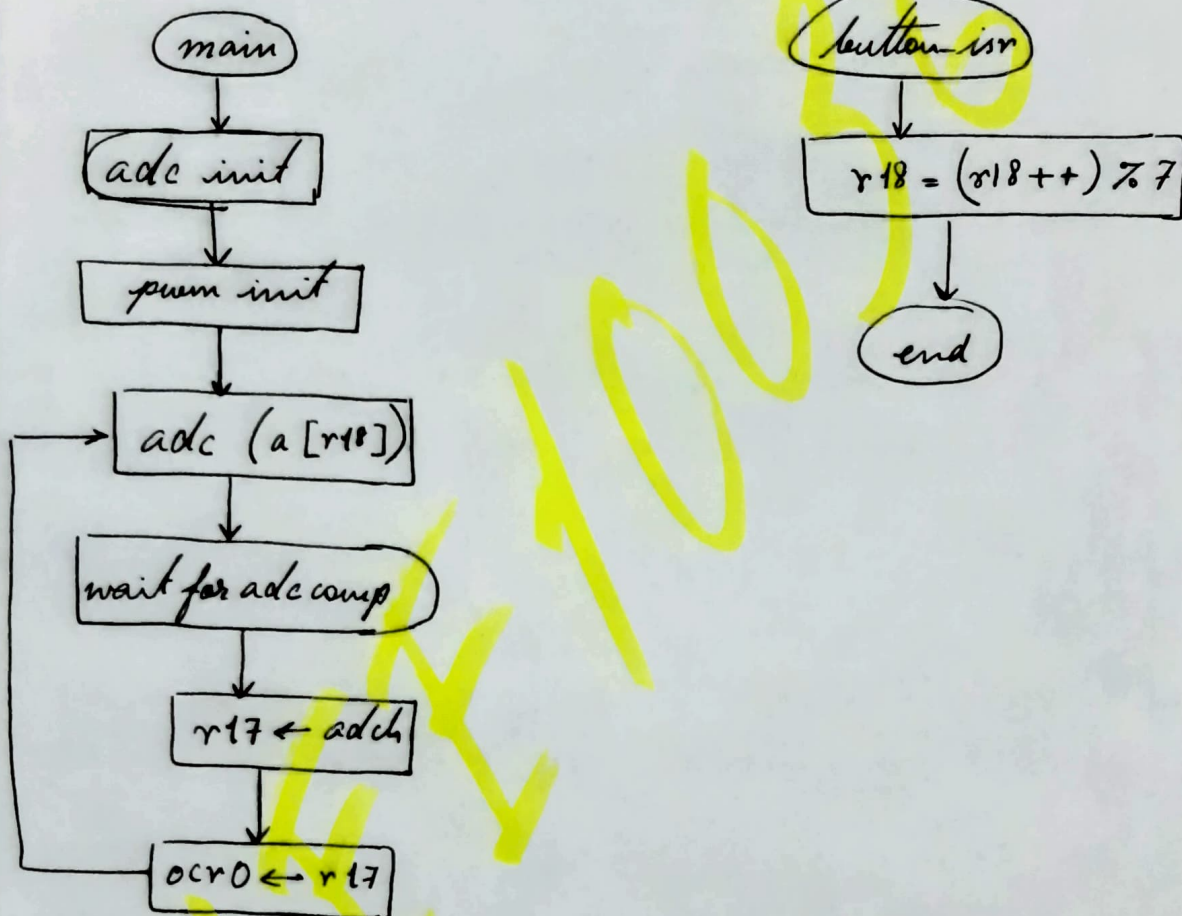 main
adc init
pwm init
adc (a[r18])
wait for adc comp
r17 ← adch
ocr0 ← r17
button_isr
r18 = (r18++) % 7
end